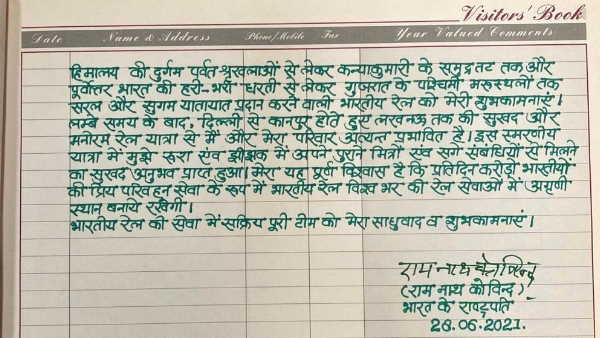 Visitors' Book
Date Name & Address Phone/Mobile Fax Your Valued Comments
हिमालय की दुर्गम पर्वत-श्रृंखलाओं से लेकर कन्याकुमारी के समुद्रतट तक और
पूर्वोत्तर भारत की हरी-भरी धरती से लेकर गुजरात के पश्चिमी मरुस्थलों तक
सरल और सुगम यातायात प्रदान करने वाली भारतीय रेल को मेरी शुभकामनाएं।
लम्बे समय के बाद, दिल्ली से कानपुर होते हुए लखनऊ तक की सुखद और
मनोरम रेल यात्रा से मैं और मेरा परिवार अत्यन्त प्रभावित है। इस स्मरणीय
यात्रा में मुझे रूरा एंव झींझक में अपने पुराने मित्रों एंव सगे संबंधियों से मिलने
का सुखद अनुभव प्राप्त हुआ। मेरा यह पूर्ण विश्वास है कि प्रतिदिन करोड़ों भारतीयों
की प्रिय परिवहन सेवा के रूप में भारतीय रेल विश्व भर की रेल सेवाओं में अग्रणी
स्थान बनाये रखेगी।
भारतीय रेल की सेवा में सक्रिय पूरी टीम को मेरा साधुवाद व शुभकामनाएं।
राम नाथ कोविन्द
(राम नाथ कोविन्द)
भारत के राष्ट्रपति
28.06.2021.